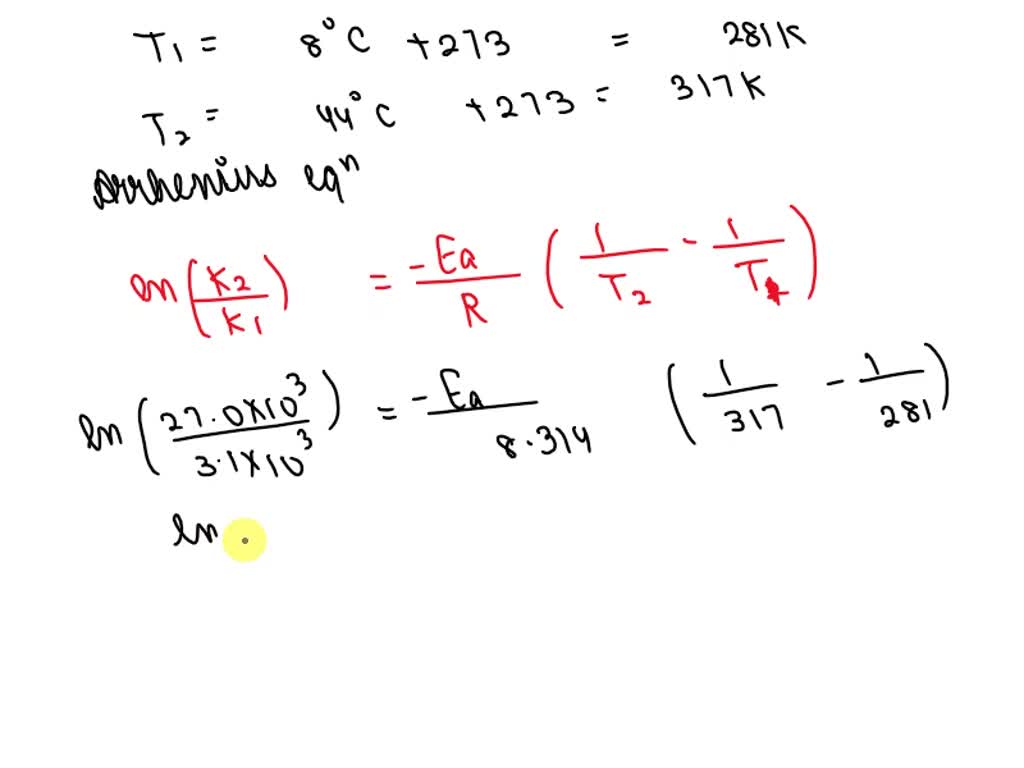 T1 = 8°C +273 = 281K
T2 = 44°C +273 = 317K
Arrhenius eqn
ln(K2/K1) = -Ea/R (1/T2 - 1/T1)
ln(27.0×10³/3.1×10³) = -Ea/8.314 (1/317 - 1/281)
ln